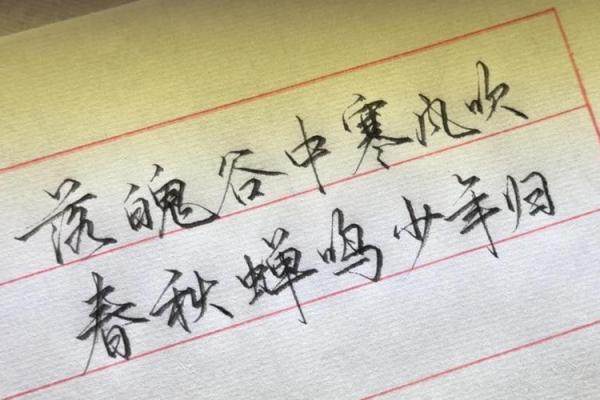 落魄谷中寒风吹
春秋蝉鸣少年归